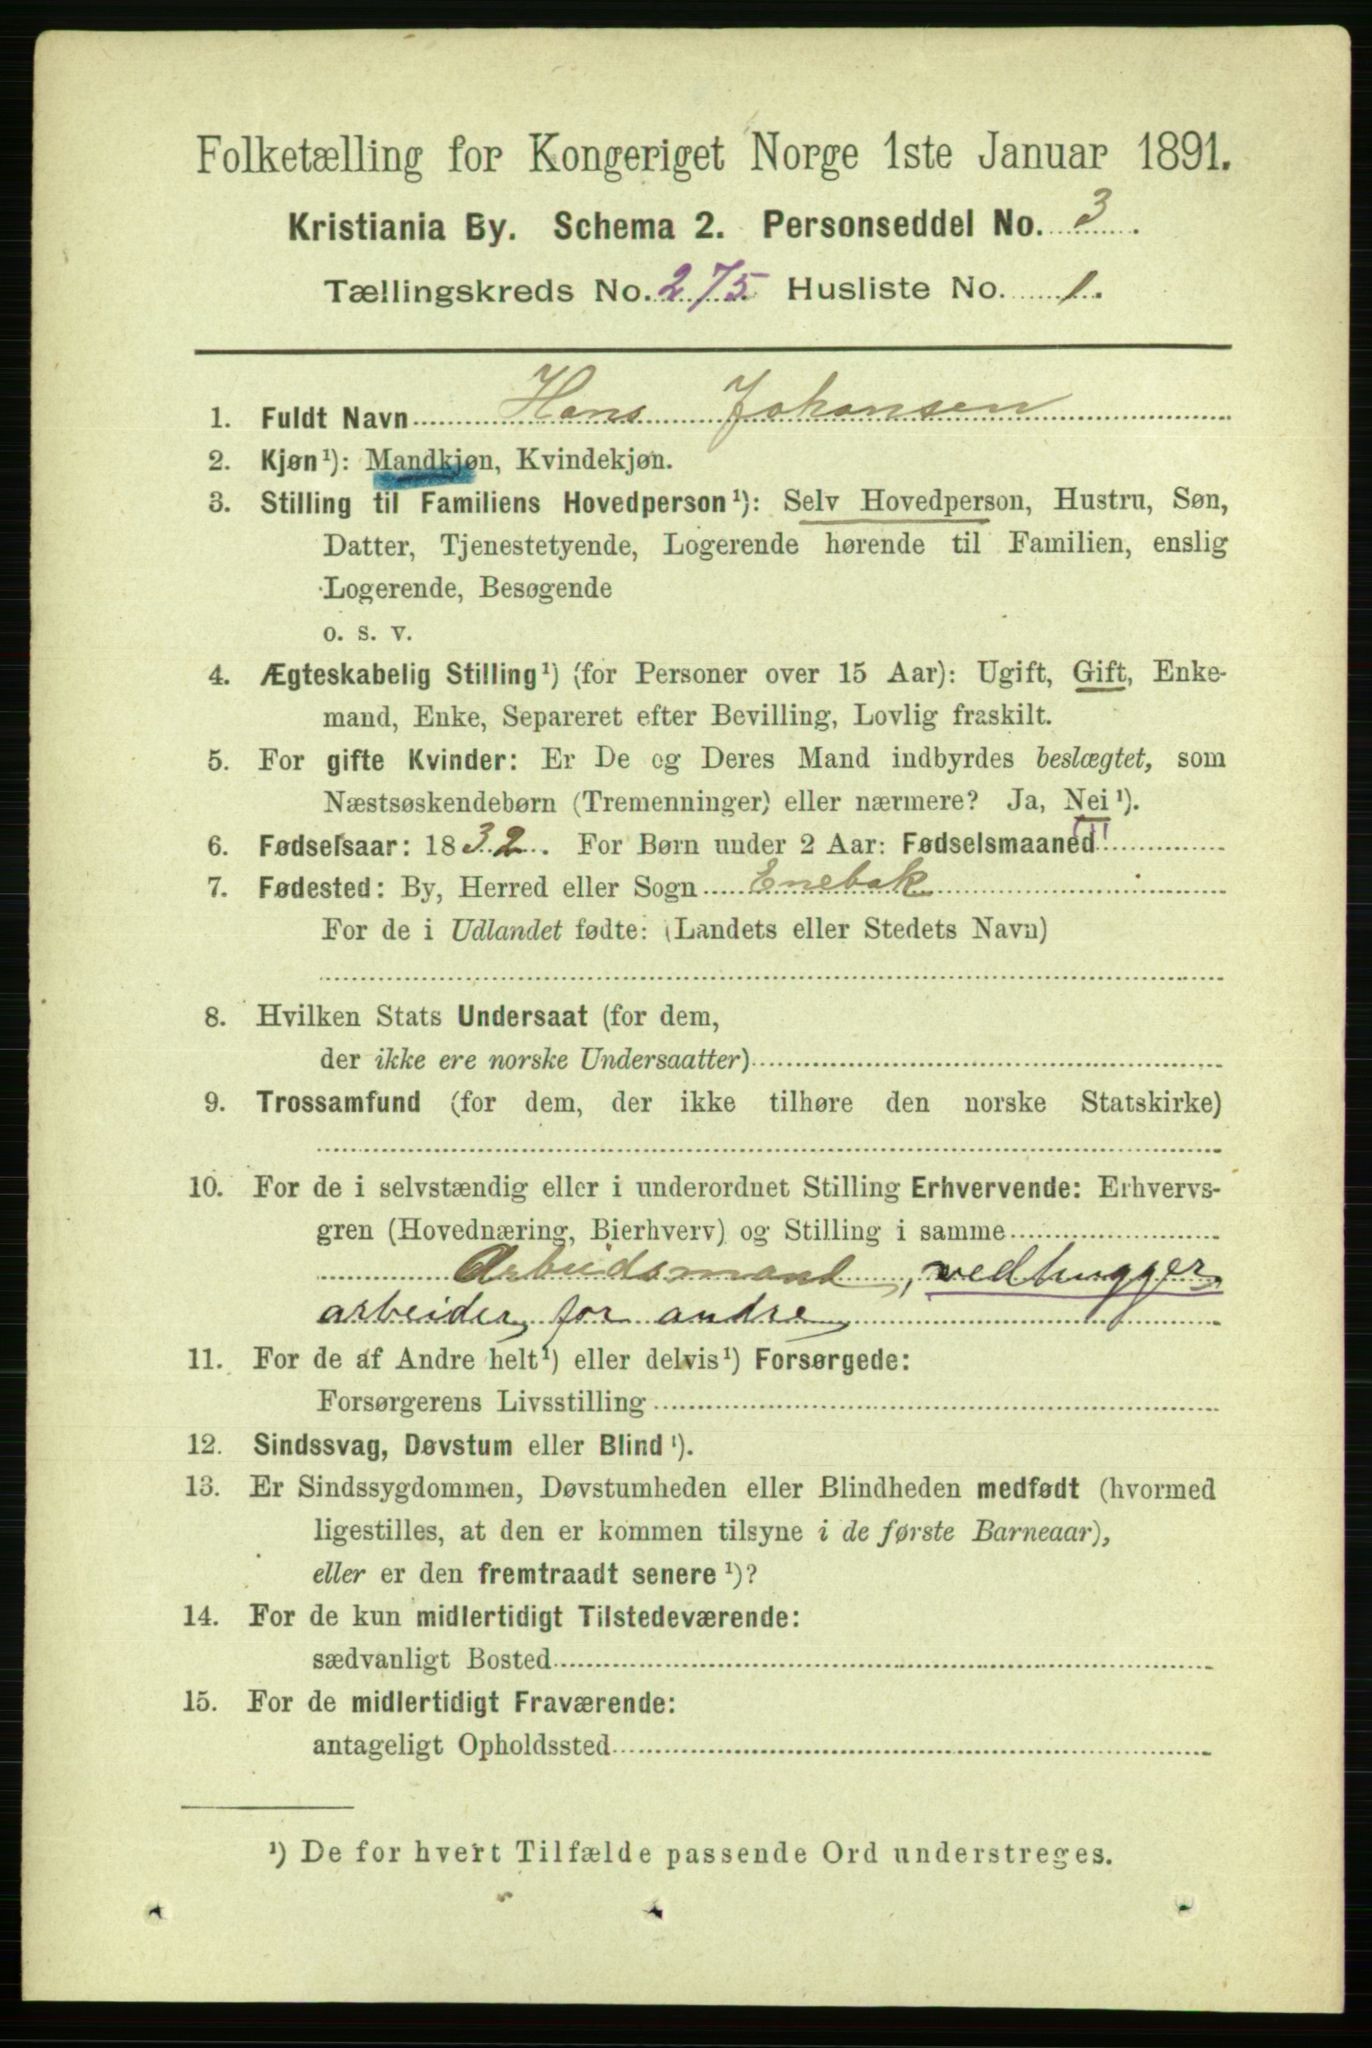 Folketælling for Kongeriget Norge 1ste Januar 1891.
Kristiania By. Schema 2. Personseddel No. 3.
Tællingskreds No. 275 Husliste No. 1.
1. Fuldt Navn Hans Johansen
2. Kjøn¹): Mandkjøn, Kvindekjøn.
3. Stilling til Familiens Hovedperson¹): Selv Hovedperson, Hustru, Søn,
Datter, Tjenestetyende, Logerende hørende til Familien, enslig
Logerende, Besøgende
o. s. v.
4. Ægteskabelig Stilling¹) (for Personer over 15 Aar): Ugift, Gift, Enke-
mand, Enke, Separeret efter Bevilling, Lovlig fraskilt.
5. For gifte Kvinder: Er De og Deres Mand indbyrdes beslægtet, som
Næstsøskendebørn (Tremenninger) eller nærmere? Ja, Nei¹).
6. Fødselsaar: 1832. For Børn under 2 Aar: Fødselsmaaned
7. Fødested: By, Herred eller Sogn Enebak
For de i Udlandet fødte: (Landets eller Stedets Navn)
8. Hvilken Stats Undersaat (for dem,
der ikke ere norske Undersaatter)
9. Trossamfund (for dem, der ikke tilhøre den norske Statskirke)
10. For de i selvstændig eller i underordnet Stilling Erhvervende: Erhvervs-
gren (Hovednæring, Bierhverv) og Stilling i samme
Arbeidsmand, vedhugger
arbeider for andre
11. For de af Andre helt¹) eller delvis¹) Forsørgede:
Forsørgerens Livsstilling
12. Sindssvag, Døvstum eller Blind¹).
13. Er Sindssygdommen, Døvstumheden eller Blindheden medfødt (hvormed
ligestilles, at den er kommen tilsyne i de første Barneaar),
eller er den fremtraadt senere¹)?
14. For de kun midlertidigt Tilstedeværende:
sædvanligt Bosted
15. For de midlertidigt Fraværende:
antageligt Opholdssted
¹) De for hvert Tilfælde passende Ord understreges.